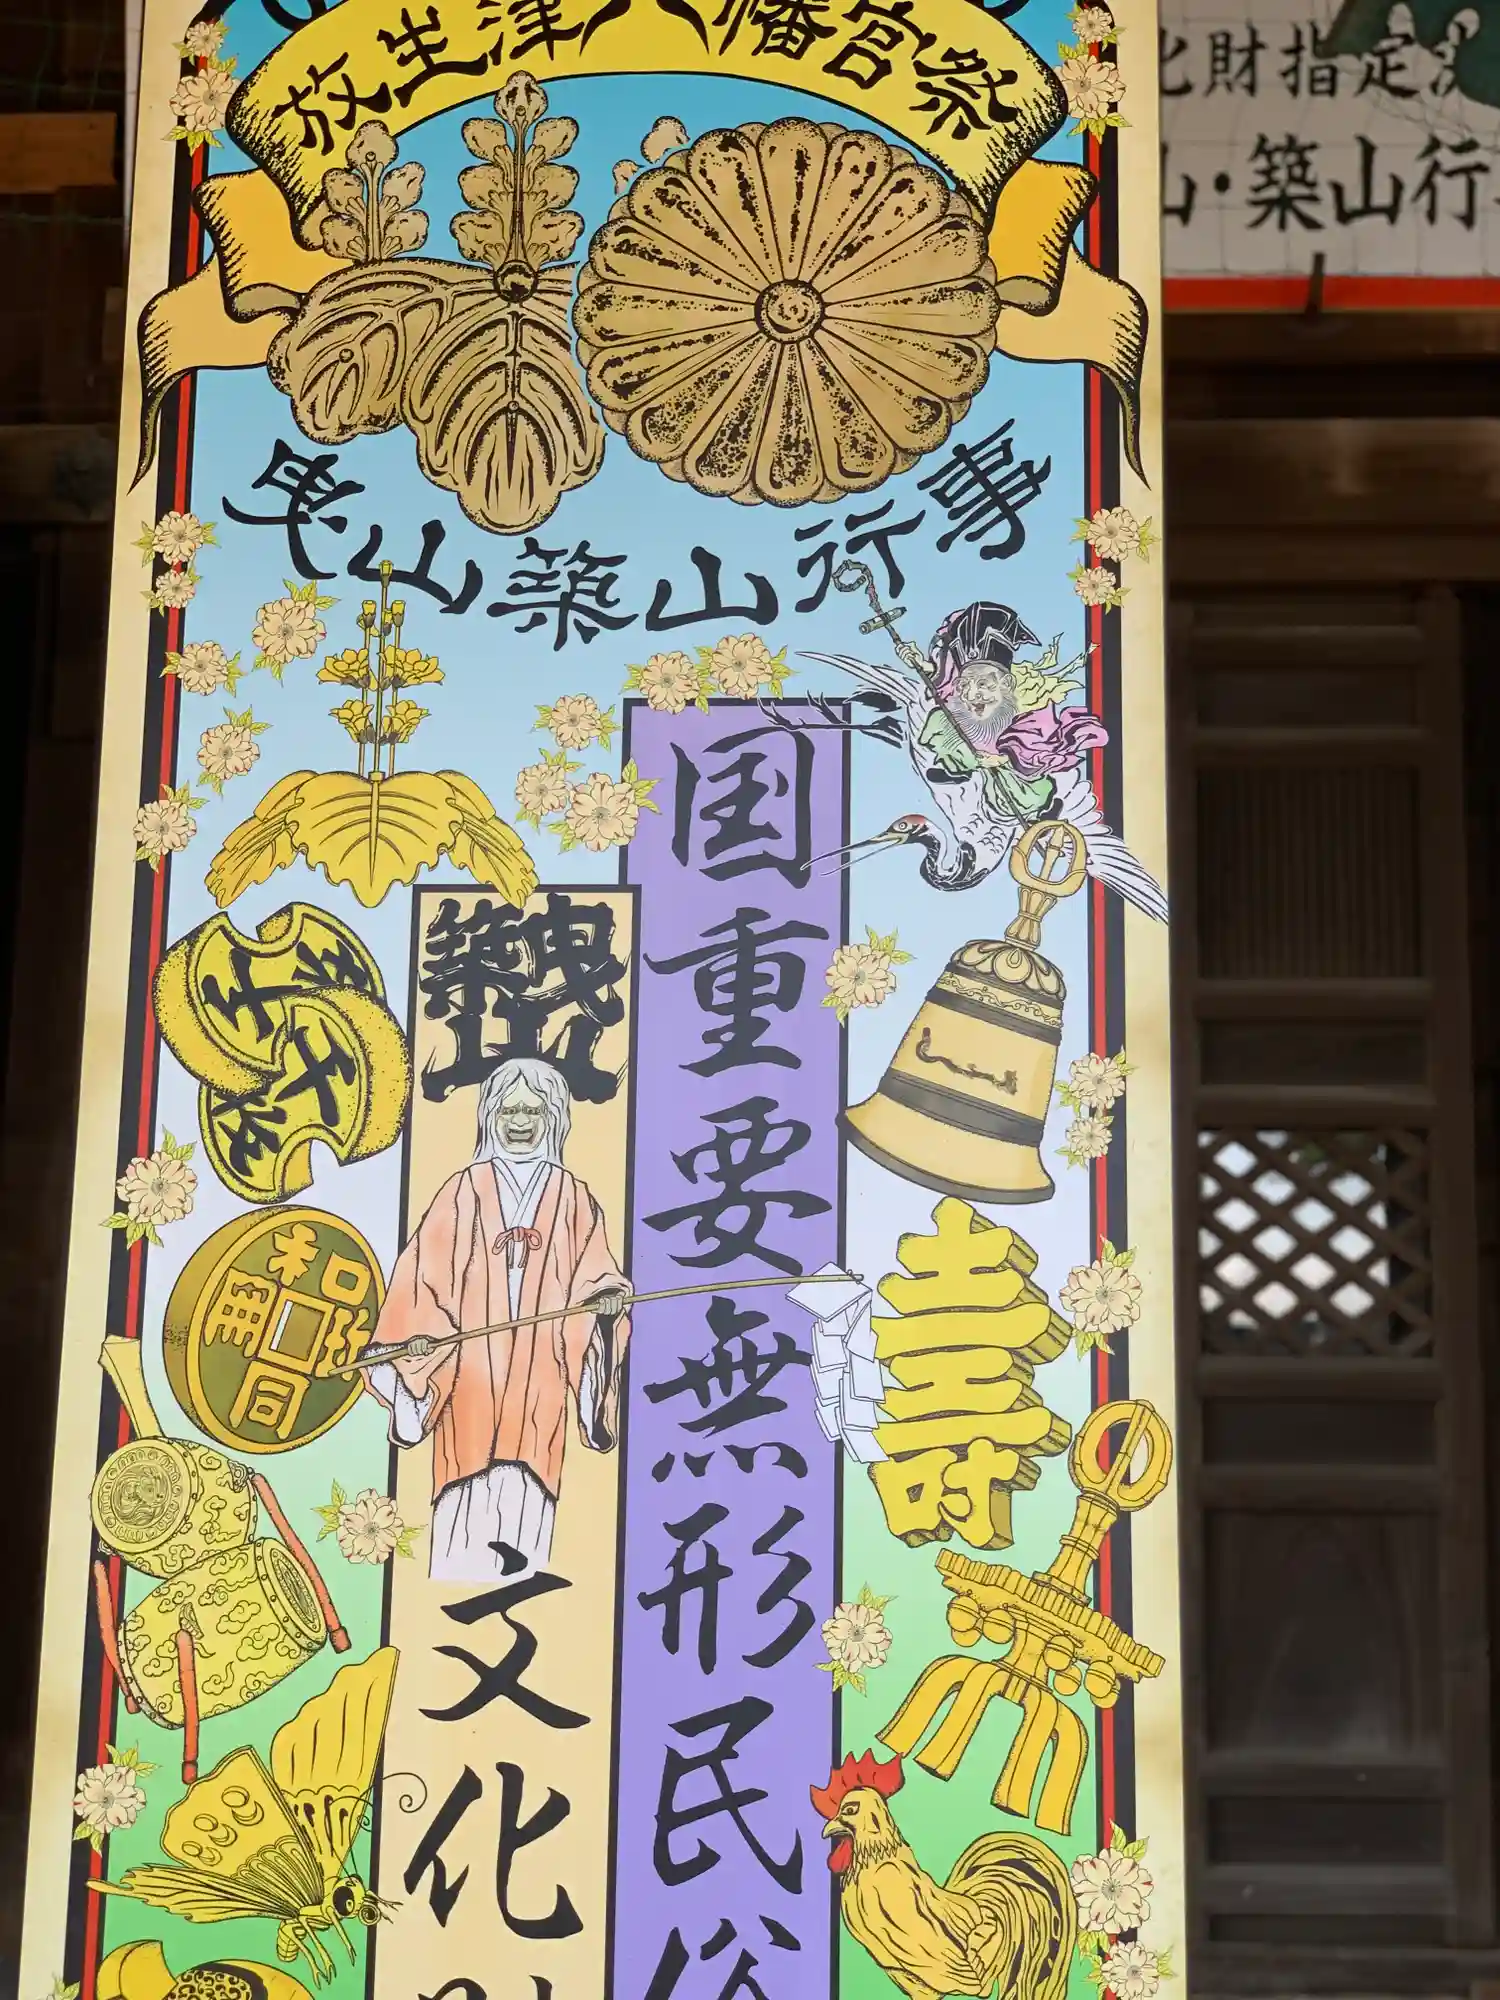 放生津八幡宮祭
曳山築山行事
国重要無形民俗
曳山
築山
文化財
壽
和同開珎
化財指定
山・築山行